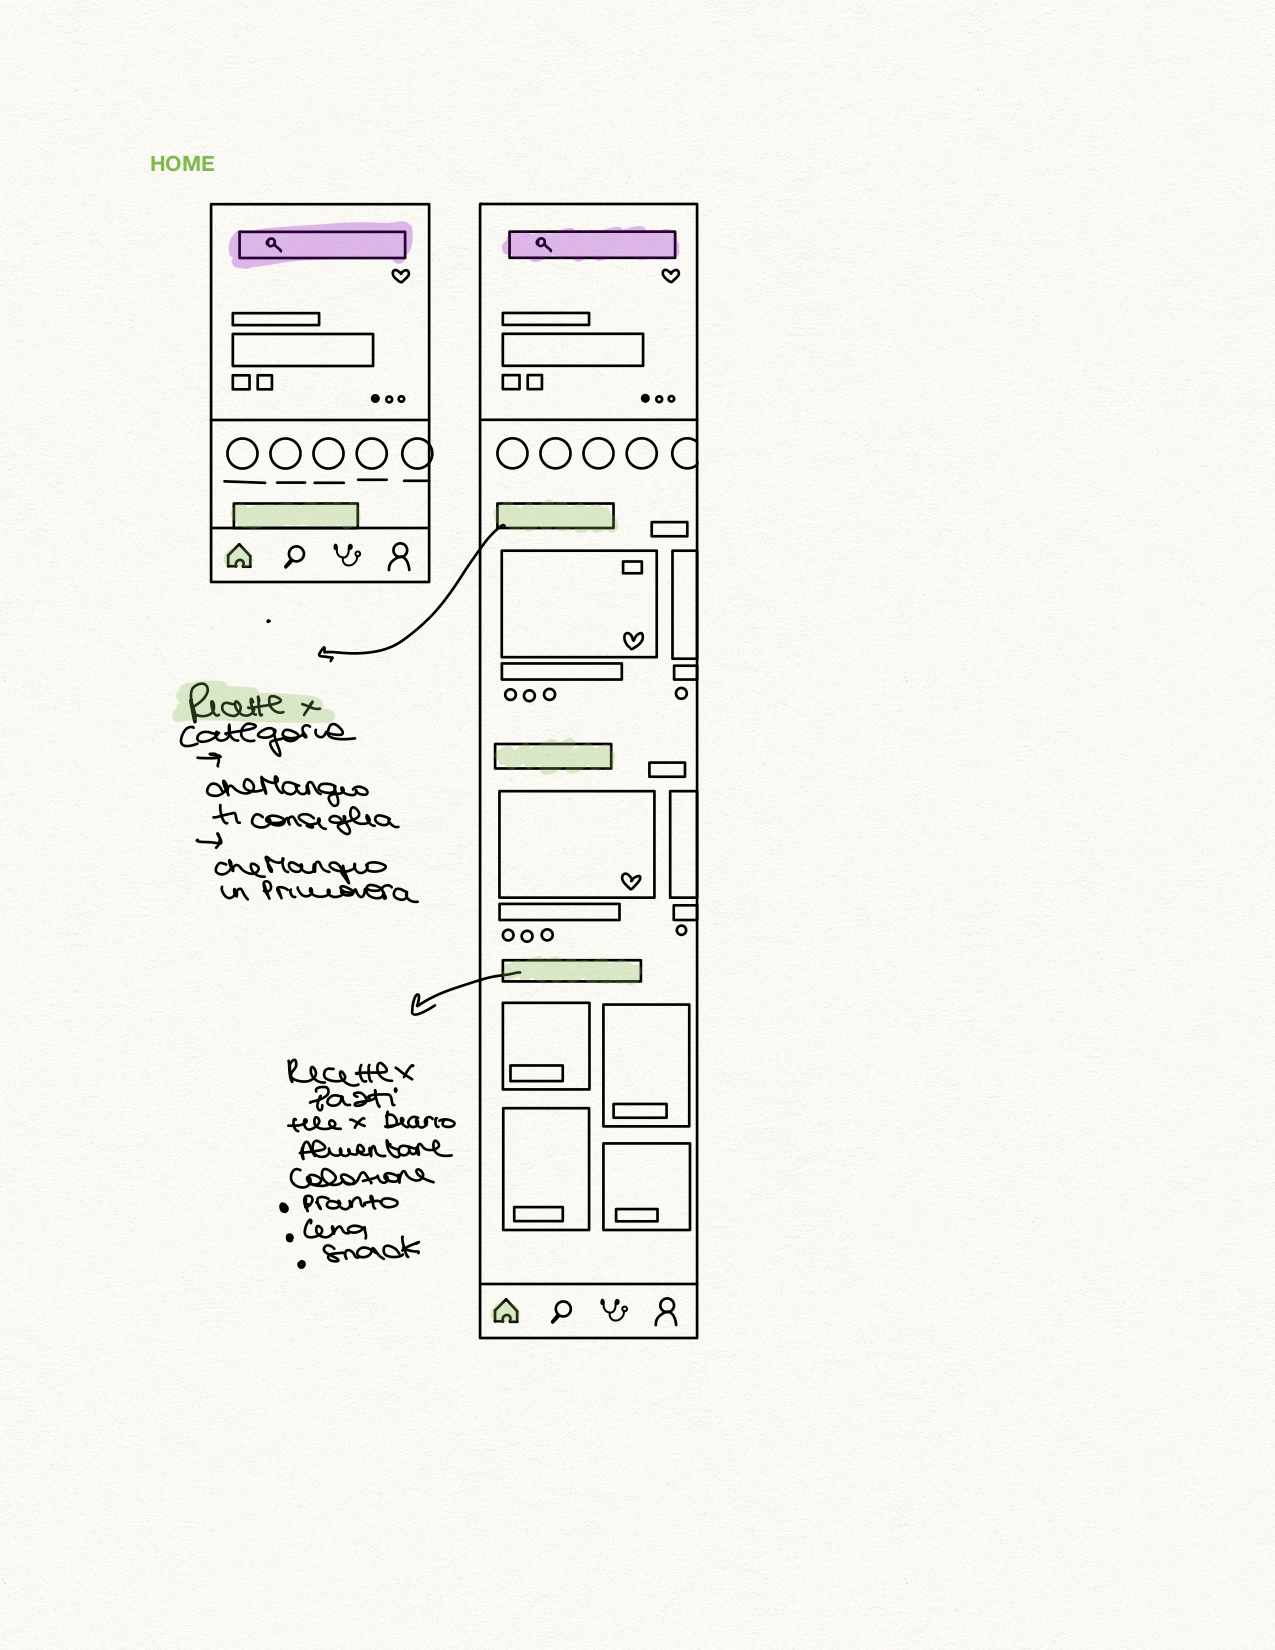 HOME
Ricette x
categorie
→
cheMangio
ti consiglia
→
cheMangio
in Primavera
Ricette x
Pasti
tile x Diario
Alimentare
Colazione
• Pranzo
• Cena
• Snack